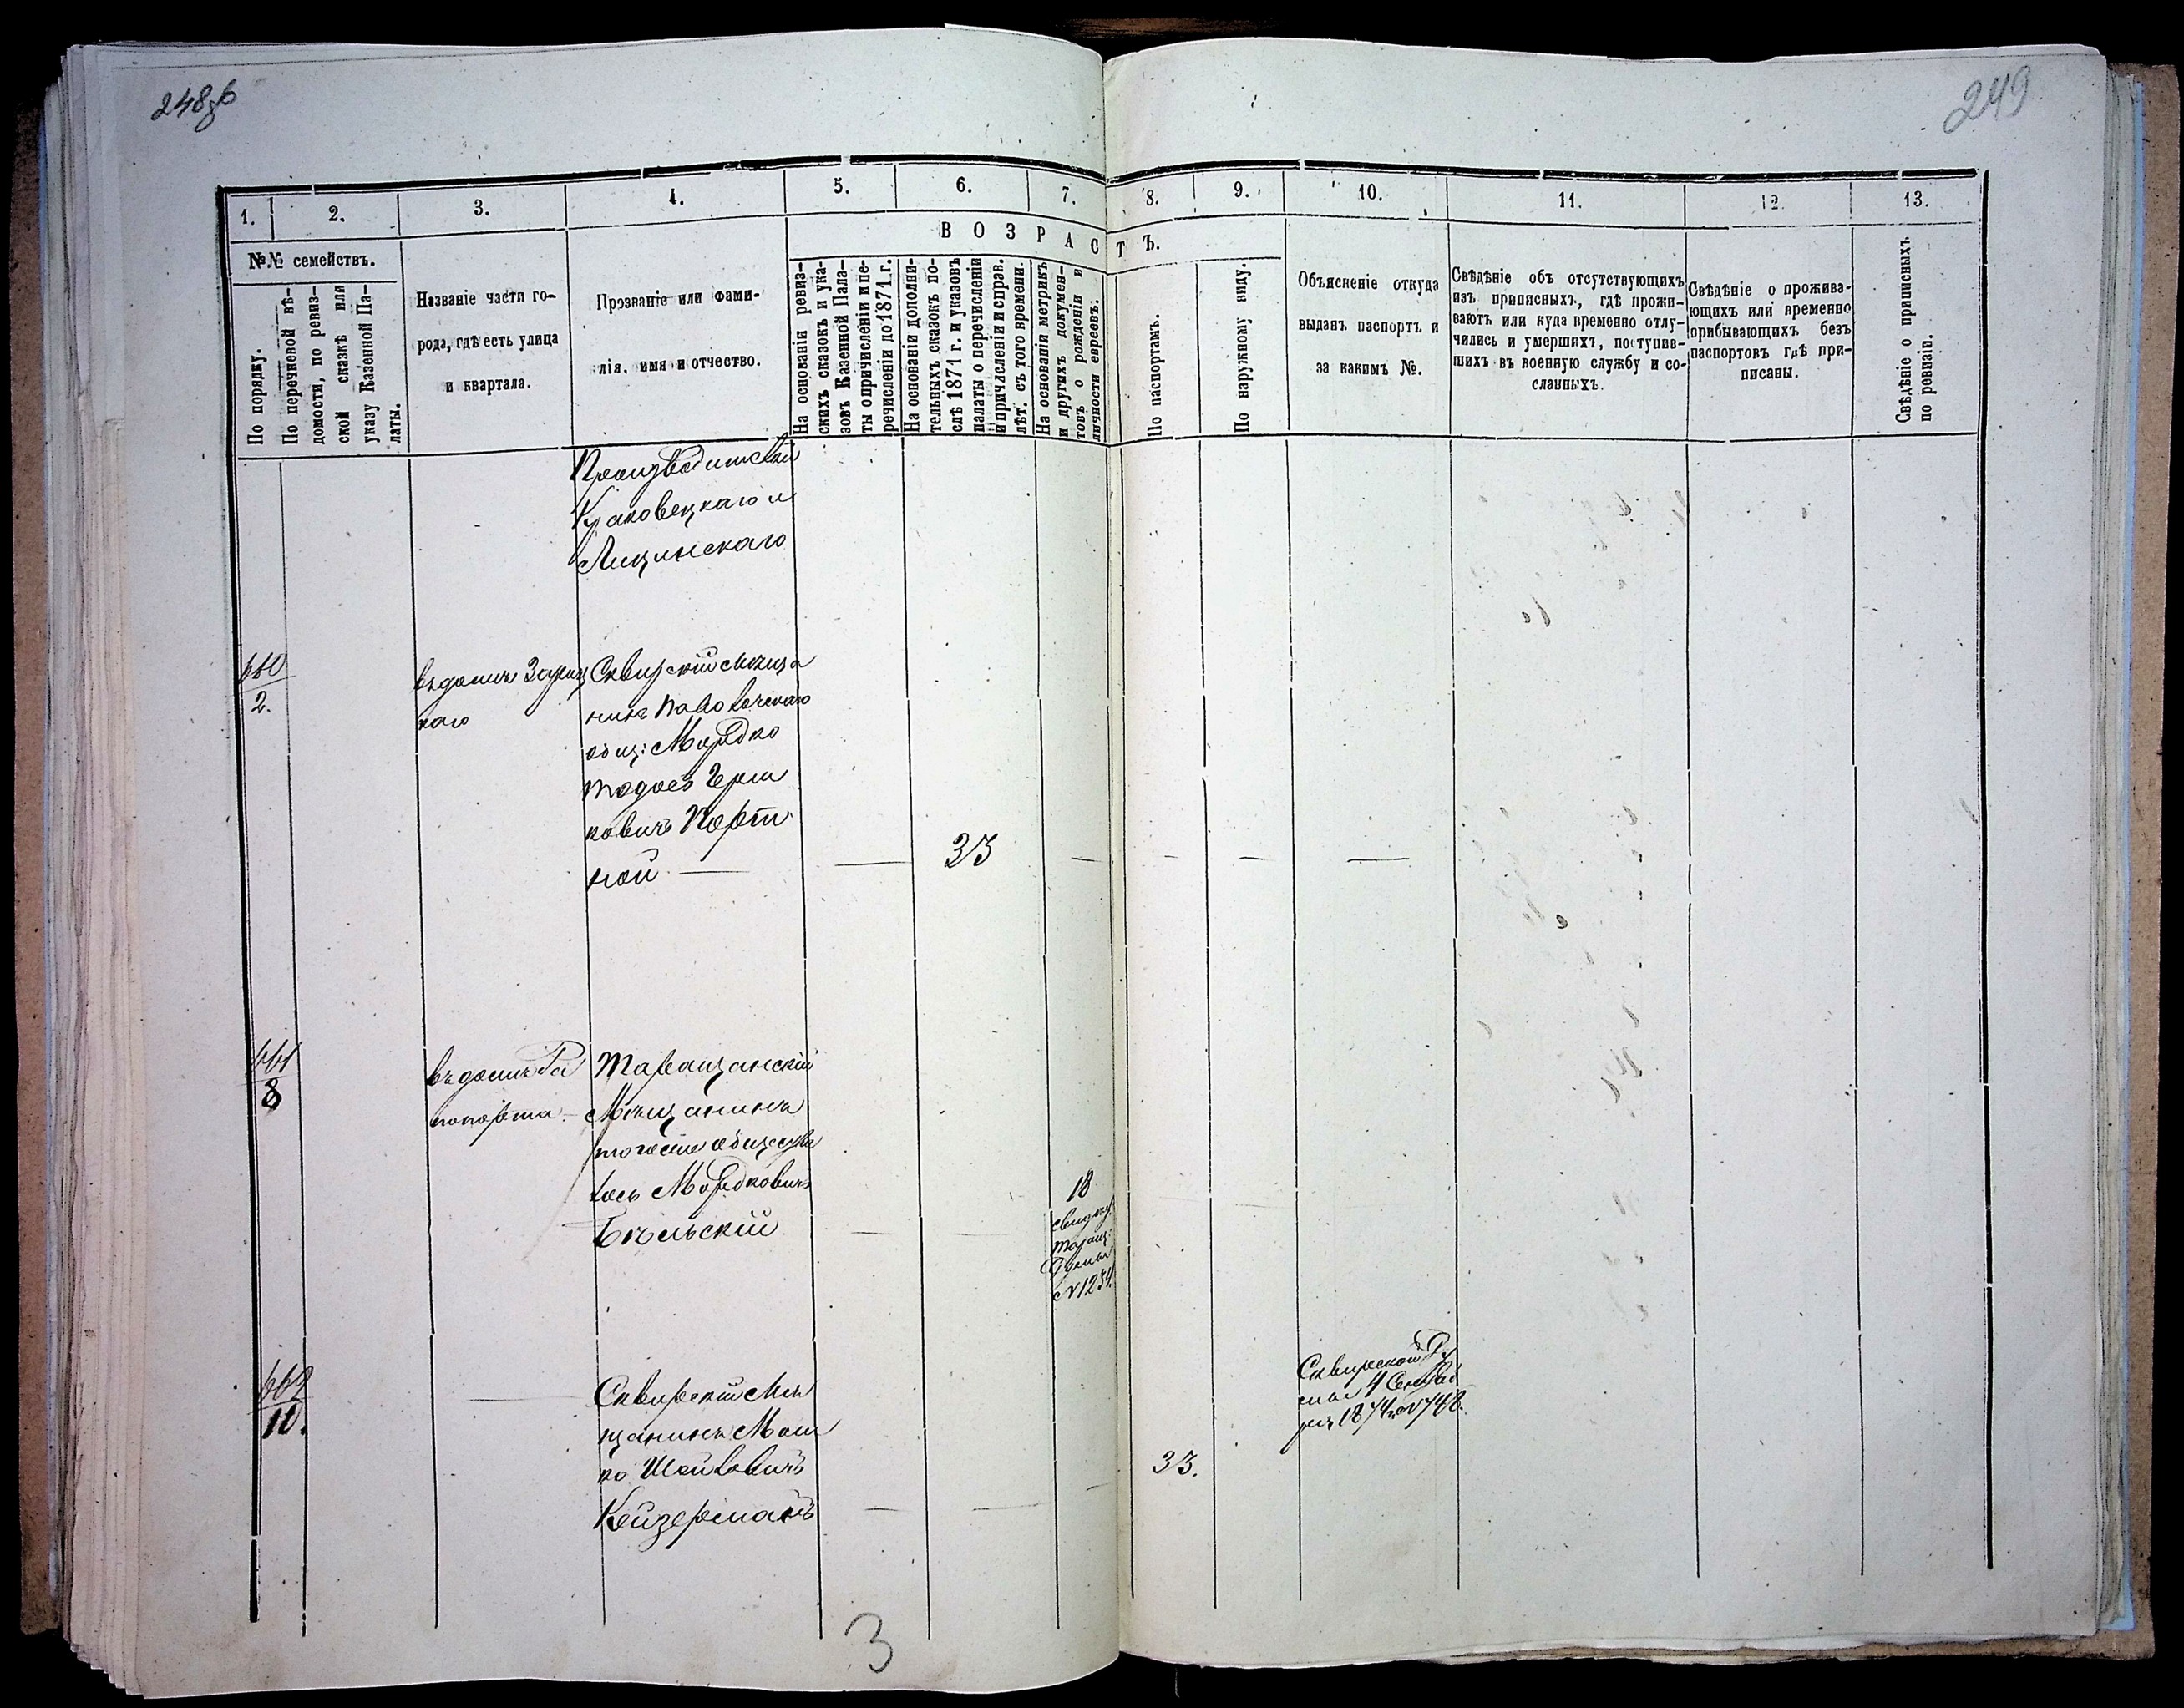 248об
249
1.
2.
3.
4.
5.
6.
7.
8.
9.
10.
11.
12.
13.
В О З Р А С Т Ъ.
№№ семействъ.
По порядку.
По перечневой вѣ-
домости, по ревиз-
ской сказкѣ или
указу Казенной Па-
латы.
Названіе части го-
рода, гдѣ есть улица
и квартала.
Прозваніе или фами-
лія, имя и отчество.
На основаніи ревиз-
скихъ сказокъ и ука-
зовъ Казенной Пала-
ты о причисленіи и пе-
речисленіи до 1871 г.
На основаніи дополни-
тельныхъ сказокъ по-
слѣ 1871 г. и указовъ
палаты о перечисленіи
и причисленіи и справ.
лѣт. съ того времени.
На основаніи метрикъ
и другихъ докумен-
товъ о рожденіи и
личности евреевъ.
По паспортамъ.
По наружному виду.
Объясненіе откуда
выданъ паспортъ и
за какимъ №.
Свѣдѣніе объ отсутствующихъ
изъ приписныхъ, гдѣ прожи-
ваютъ или куда временно отлу-
чились и умершихъ, поступив-
шихъ въ военную службу и со-
сланныхъ.
Свѣдѣніе о прожива-
ющихъ или временно
прибывающихъ безъ
паспортовъ гдѣ при-
писаны.
Свѣдѣніе о приписныхъ
по ревизіи.
Краковецкаго и
Лищинскаго
660
2.
въ домѣ
каго
Сквирскій мѣща
нинъ Паволочскаго
общ: Мордко
Тодресъ Герш
ковичъ Порт
ной —
— 33 — — — —
661
8
въ домѣ Ра
попорта —
Таращанскій
Мѣщанинъ
тогоже общества
Іось Мордковичъ
Бѣльскій
— —
18
свидѣт.
Таращ:
Думы
№ 1234
662
10.
—
Сквирскій Мѣ
щанинъ Мош
ко Шоиловичъ
Кейзерманъ
— — —
33.
Сквирской Ду
мы 4 Сентяб
ря 1874 № 748.
3